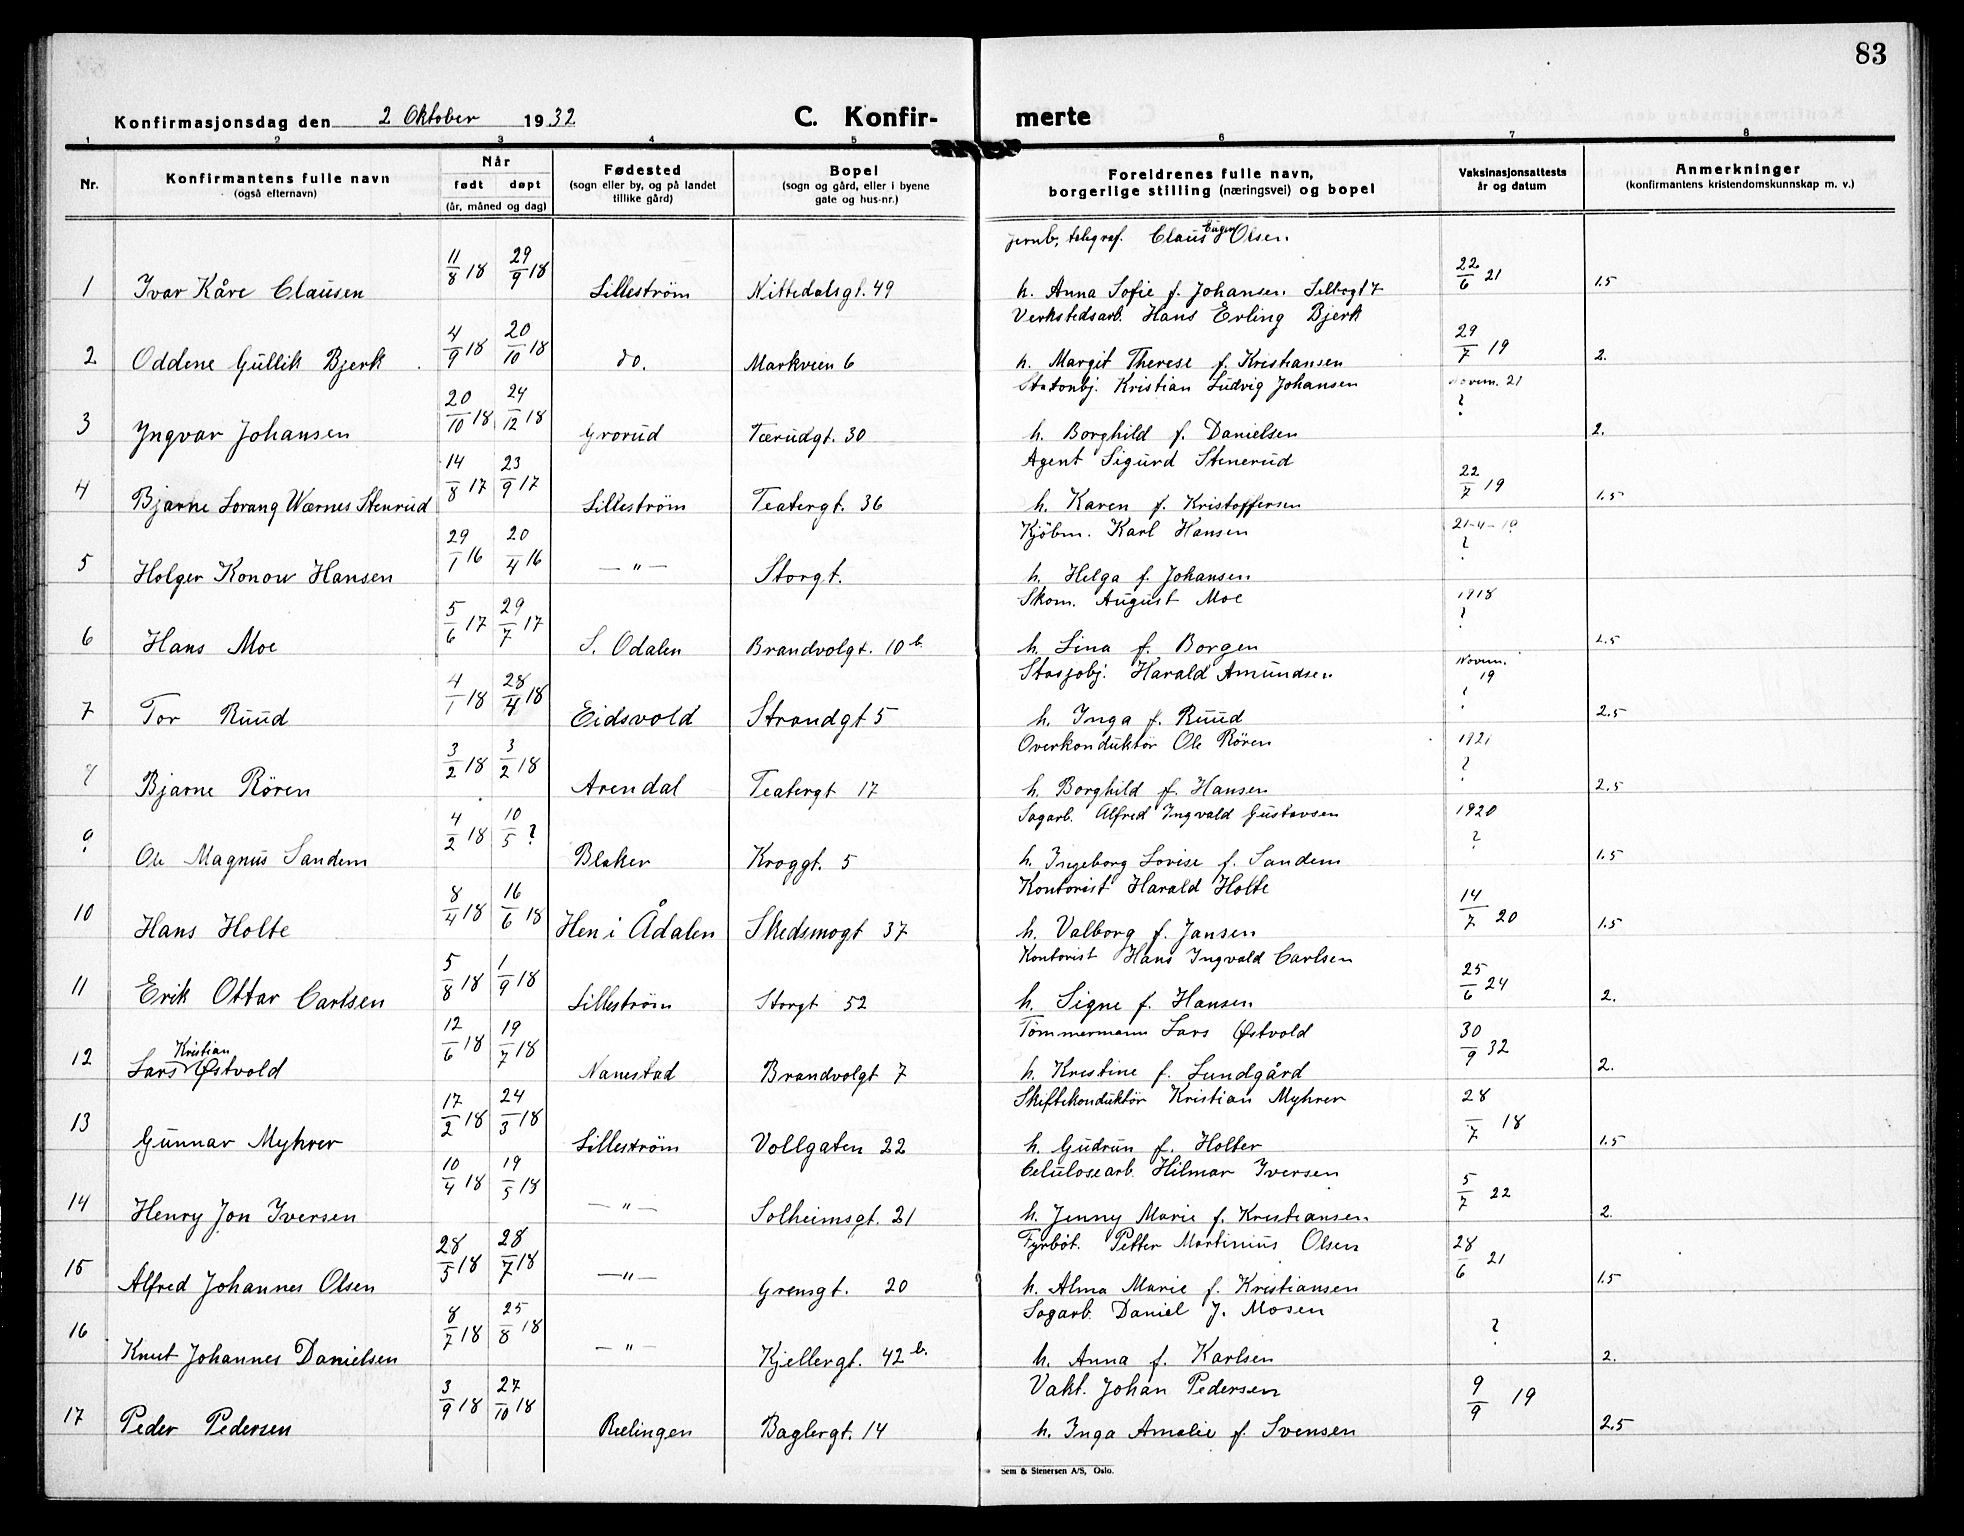 83
Konfirmasjonsdag den 2 Oktober 1932
C. Konfir- merte
1 2 3 4 5 6 7 8
Nr.
Konfirmantens fulle navn
(også efternavn)
Når
født døpt
(år, måned og dag)
Fødested
(sogn eller by, og på landet
tillike gård)
Bopel
(sogn og gård, eller i byene
gate og hus-nr.)
Foreldrenes fulle navn,
borgerlige stilling (næringsvei) og bopel
Vaksinasjonsattests
år og datum
Anmerkninger
(konfirmantens kristendomskunnskap m. v.)
jernb. telegraf. Claus Eugen Olsen
1 Ivar Kåre Clausen 11/8 18 29/9 18 Lilleström Nittedalsgt. 49 h. Anna Sofie f. Johansen 22/6 21 1.5
Verkstedsarb. Hans Erling Bjerk
2 Oddene Gullik Bjerk 4/9 18 20/10 18 do. Markveien 6 h. Margit Therese f. Kristiansen 29/7 19 2.
Kristian Ludvig Johansen novem. 21
3 Yngvar Johansen 20/10 18 24/12 18 Grorud Tærudgt. 30 h. Borghild f. Danielsen ? 2.
Agent Sigurd Stenerud
4 Bjarne Lorang Wærnes Stenrud 14/8 17 23/9 17 Lilleström Teatergt. 36 h. Karen f. Kristoffersen 22/7 19 1.5
Kjöbm. Karl Hansen 21-4-19
5 Holger Konow Hansen 29/1 16 20/4 16 — " — Storgt. h. Helga f. Johansen ?
Skom. August Moe 1918
6 Hans Moe 5/6 17 29/7 17 S. Odalen Brandvolgt. 10 b. h. Lina f. Borgen ? 2.5
Harald Amundsen Novem. 19
7 Tor Ruud 4/1 18 28/4 18 Eidsvold Strandgt 5 h. Inga f. Ruud ? 2.5
Overkonduktör Ole Rören 1921
8 Bjarne Rören 3/2 18 3/2 18 Arendal Teatergt 17 h. Borghild f. Hansen ? 2.5
Sagarb. Alfred Ingvald Gustavsen 1920
9 Ole Magnus Sandem 4/2 18 10/5 ? Blaker Kroggt. 5 h. Ingeborg Lovise f. Sandem ? 1.5
Kontorist Harald Holte
10 Hans Holte 8/4 18 16/6 18 Hen i Ådalen Skedsmogt 37 h. Valborg f. Jansen 14/7 20 1.5
Kontorist Hans Ingvald Carlsen
11 Erik Ottar Carlsen 5/8 18 1/9 18 Lilleström Storgt 52 h. Signe f. Hansen 25/6 24 2.
Tömmermann Lars Østvold
12 Lars Kristian Østvold 12/6 18 19/7 18 Nanestad Brandvolgt 7 h. Kristine f. Lundgård 30/9 32 2.
Skiftekonduktør Kristian Myhrer
13 Gunnar Myhrer 17/2 18 24/3 18 Lillestrøm Vollgaten 22 h. Gudrun f. Holter 28/7 18 1.5
Celulosearb. Hilmar Iversen
14 Henry Jon Iversen 10/4 18 19/5 18 — " — Solheimsgt. 21 h. Jenny Marie f. Kristiansen 5/7 22 2.
Fyrböt. Petter Martinius Olsen
15 Alfred Johannes Olsen 28/5 18 28/7 18 — " — Grensgt. 20 h. Alma Marie f. Kristiansen 28/6 21 1.5
Sagarb. Daniel J. Mosen
16 Knut Johannes Danielsen 8/7 18 25/8 18 — " — Kjellergt. 42 b. h. Anna f. Karlsen ? 2.
Vakt. Johan Pedersen
17 Peder Pedersen 3/9 18 27/10 18 Rælingen Baglergt. 14 h. Inga Amalie f. Svensen 9/9 19 2.5
Sem & Stenersen A/S, Oslo.